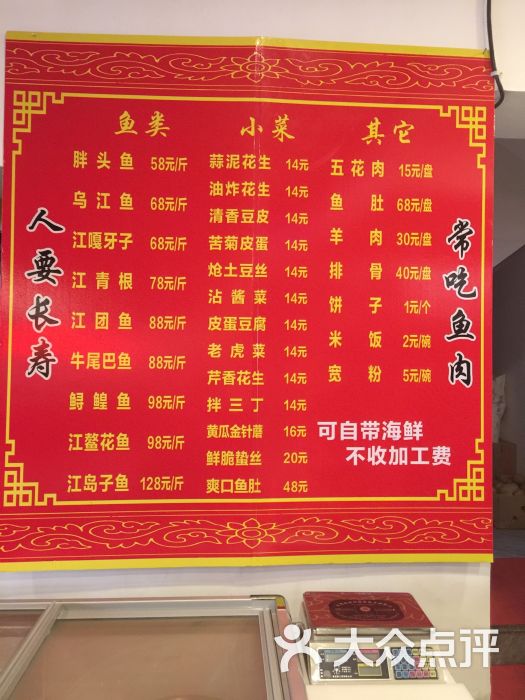 鱼类
胖头鱼 58元/斤
乌江鱼 68元/斤
江嘎牙子 68元/斤
江青根 78元/斤
江团鱼 88元/斤
牛尾巴鱼 88元/斤
鲟鳇鱼 98元/斤
江鳌花鱼 98元/斤
江岛子鱼 128元/斤
小菜
蒜泥花生 14元
油炸花生 14元
清香豆皮 14元
苦菊皮蛋 14元
炝土豆丝 14元
沾酱菜 14元
皮蛋豆腐 14元
老虎菜 14元
芹香花生 14元
拌三丁 14元
黄瓜金针蘑 16元
鲜脆蛰丝 20元
爽口鱼肚 48元
其它
五花肉 15元/盘
鱼肚 68元/盘
羊肉 30元/盘
排骨 40元/盘
饼子 1元/个
米饭 2元/碗
宽粉 5元/碗
可自带海鲜
不收加工费
人要长寿
常吃鱼肉
大众点评